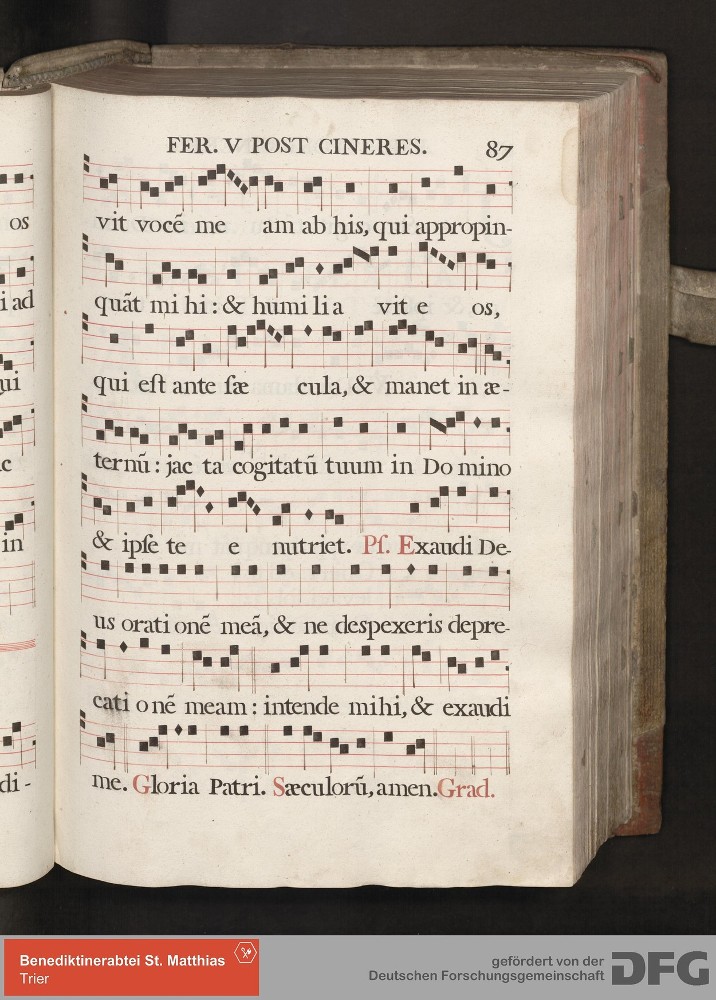 FER. V POST CINERES. 87
os
vit vocẽ me am ab his, qui appropin-
i ad
quãt mi hi : & humi li a vit e os,
qui
qui eſt ante ſæ cula, & manet in æ-
c
ternũ : jac ta cogitatũ tuum in Do mino
in
& ipſe te e nutriet. Pſ. Exaudi De-
us orati onẽ meã, & ne despexeris depre-
cati onẽ meam : intende mihi, & exaudi
di-
me. Gloria Patri. Sæculorũ, amen. Grad.
Benediktinerabtei St. Matthias
Trier
gefördert von der
Deutschen Forschungsgemeinschaft DFG